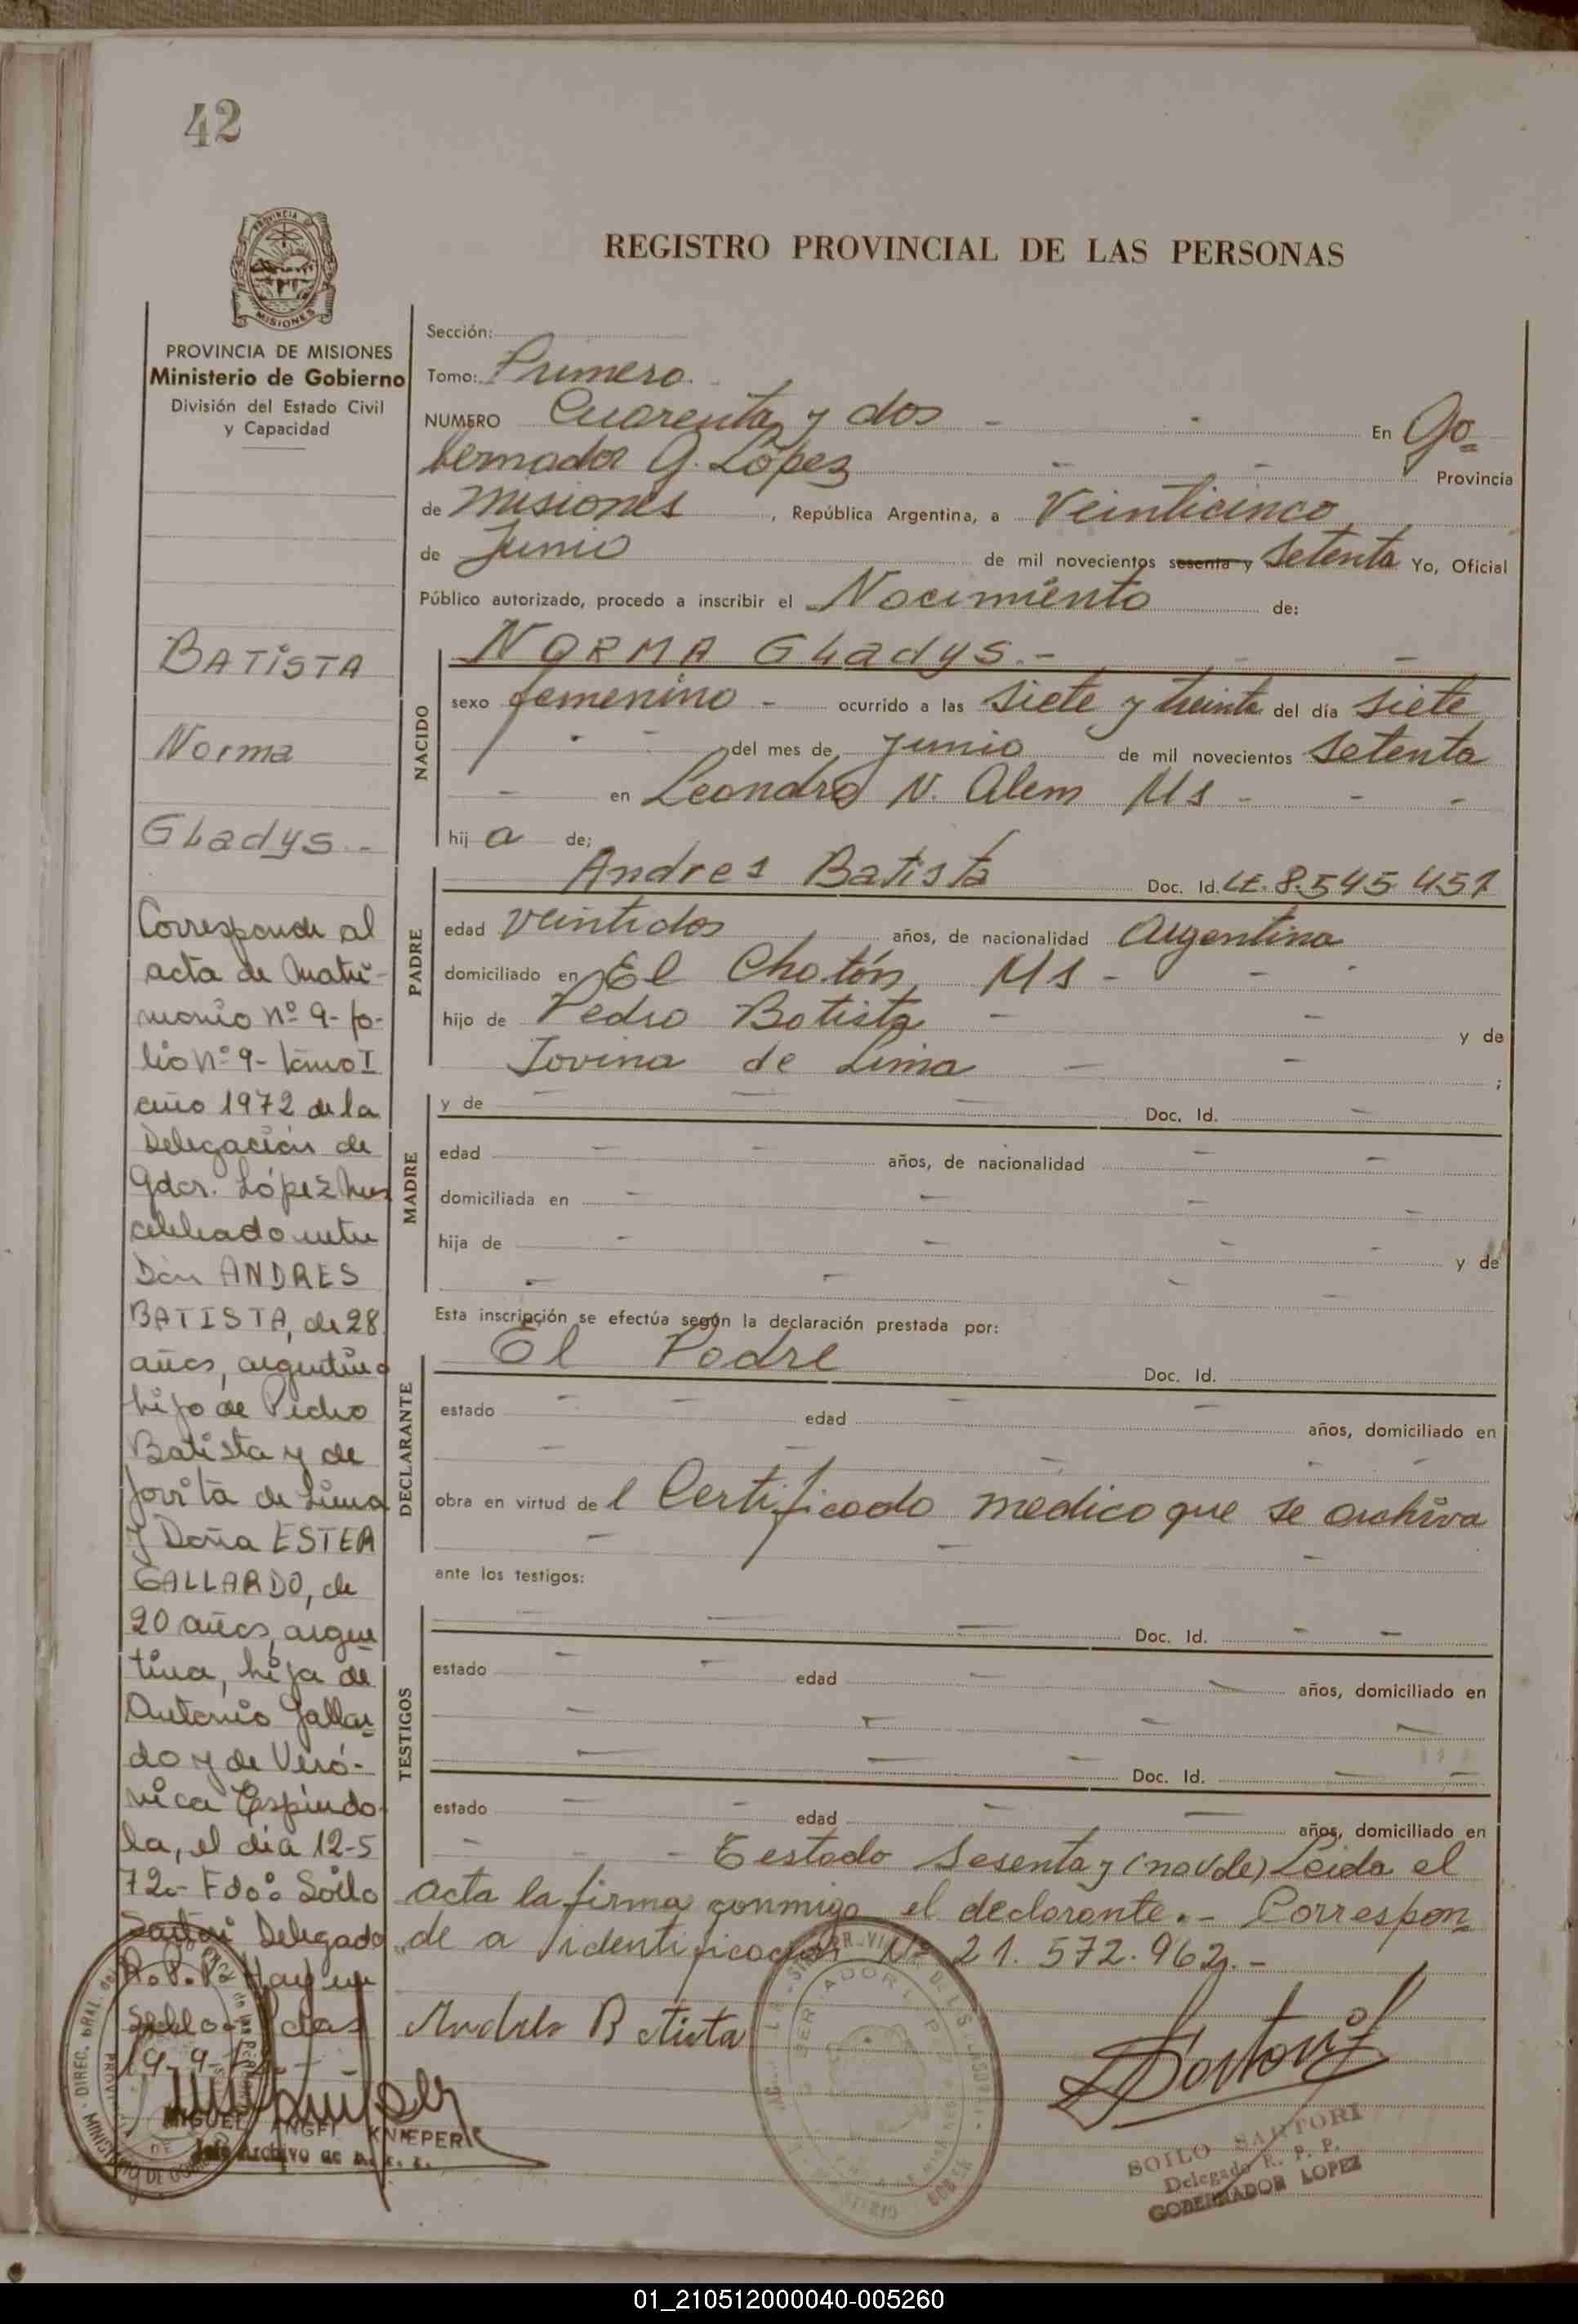 42
PROVINCIA
MISIONES
REGISTRO PROVINCIAL DE LAS PERSONAS
PROVINCIA DE MISIONES
Ministerio de Gobierno
División del Estado Civil
y Capacidad
BATISTA
Norma
GLadys.-
Corresponde al
acta de Matri-
monio nº 9- fo-
lio nº 9- tomo I
año 1972 de la
Delegación de
Gdor. López
celebrado entre
Don ANDRES
BATISTA, de 28
años, argentino
hijo de Pedro
Batista y de
Jovita de Lima
y Doña ESTER
GALLARDO, de
20 años, argen
tina, hija de
Antonio Gallar
do y de Veró-
nica Espíndo
la, el día 12-5
72.- Fdo: Soilo
Sartori Delegado
R.P.P. Hay un
sello.- Pdas
19-9-
MIGUEL ANGEL KNIEPER
Jefe Archivo de
Sección:
Tomo: Primero.
NUMERO Cuarenta y dos - - En Go=
bernador G. López - - Provincia
de Misiones, República Argentina, a Veinticinco
de Junio de mil novecientos sesenta y Setenta Yo, Oficial
Público autorizado, procedo a inscribir el Nacimiento de:
NACIDO
NORMA GLadys.- - -
sexo femenino - ocurrido a las siete y treinta del día siete
del mes de junio de mil novecientos setenta
- en Leandro N. Alem Ms - - -
hij a de:
PADRE
Andres Batista Doc. Id. LE. 8.545.457
edad veintidos años, de nacionalidad Argentina
domiciliado en El Chatón Ms - - -
hijo de Pedro Batista - - y de
Jovina de Lima - - ;
MADRE
y de - - - Doc. Id. -
edad - - años, de nacionalidad - -
domiciliada en - - - -
hija de - - - - y de
- - - -
Esta inscripción se efectúa según la declaración prestada por:
DECLARANTE
El Padre Doc. Id.
estado - - edad - - años, domiciliado en
- - - - -
obra en virtud de l Certificado medico que se archiva
- - -
ante los testigos:
TESTIGOS
- - - Doc. Id. - -
estado - - edad - - años, domiciliado en
- - - -
- - - Doc. Id. - -
estado - - edad - - años, domiciliado en
- - - Testado sesenta y (no vale) Leida el
acta la firma conmigo el declarante.- Correspon=
de a identificación Nº 21.572.962.-
Andres Batista
SOILO SARTORI
Delegado R. P. P.
GOBERNADOR LOPEZ
01_210512000040-005260